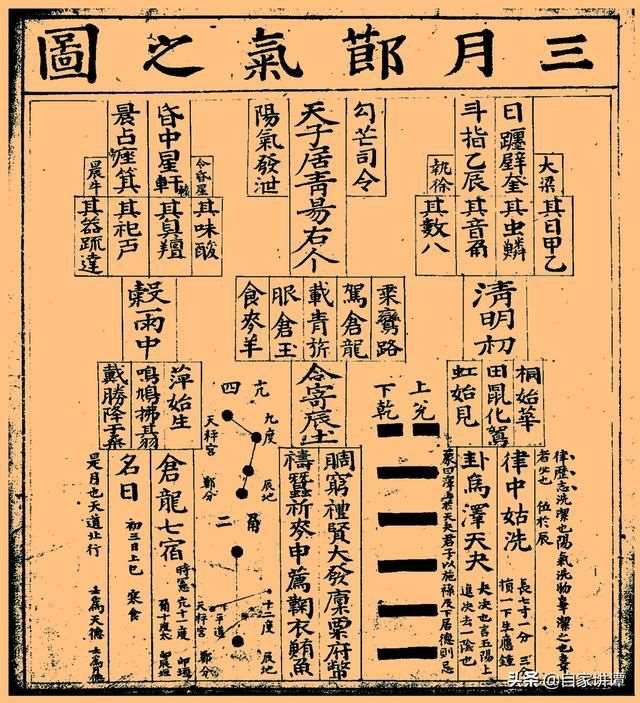 三月節氣之圖
大梁
日躔壁奎
斗指乙辰
執徐
其日甲乙
其虫鱗
其音角
其數八
勾芒司令
天子居青昜右个
陽氣發泄
令昏星
昏中星軒
晨占
箕
晨牛
其味酸
其臭羶
其祀戸
其器疏達
清明初
桐始華
田鼠化鴽
虹始見
乘鸞路
駕倉龍
載青旂
服倉玉
食麥羊
穀雨中
萍始生
鳴鳩拂其羽
戴勝降于桑
念寄辰土
上兊
下乾
律歷志洗潔也陽氣洗物辜潔之也
者少也
位於辰
律中姑洗
長七寸一分
損一下生應鐘
卦爲澤天夬
夬決也言五陽上
進決去一陰也
君子以施祿及下居德則忌
賙窮禮賢大發廩粟府幣
禱蠶祈麥申薦鞠衣鮪魚
亢
四
九度
辰地
天秤宮
鄭分
角
二
十二度
辰地
天秤宮
鄭分
倉龍七宿
名日
初三日上巳
寒食
是月也天道北行
壬爲天德
头条 @自家讲谭